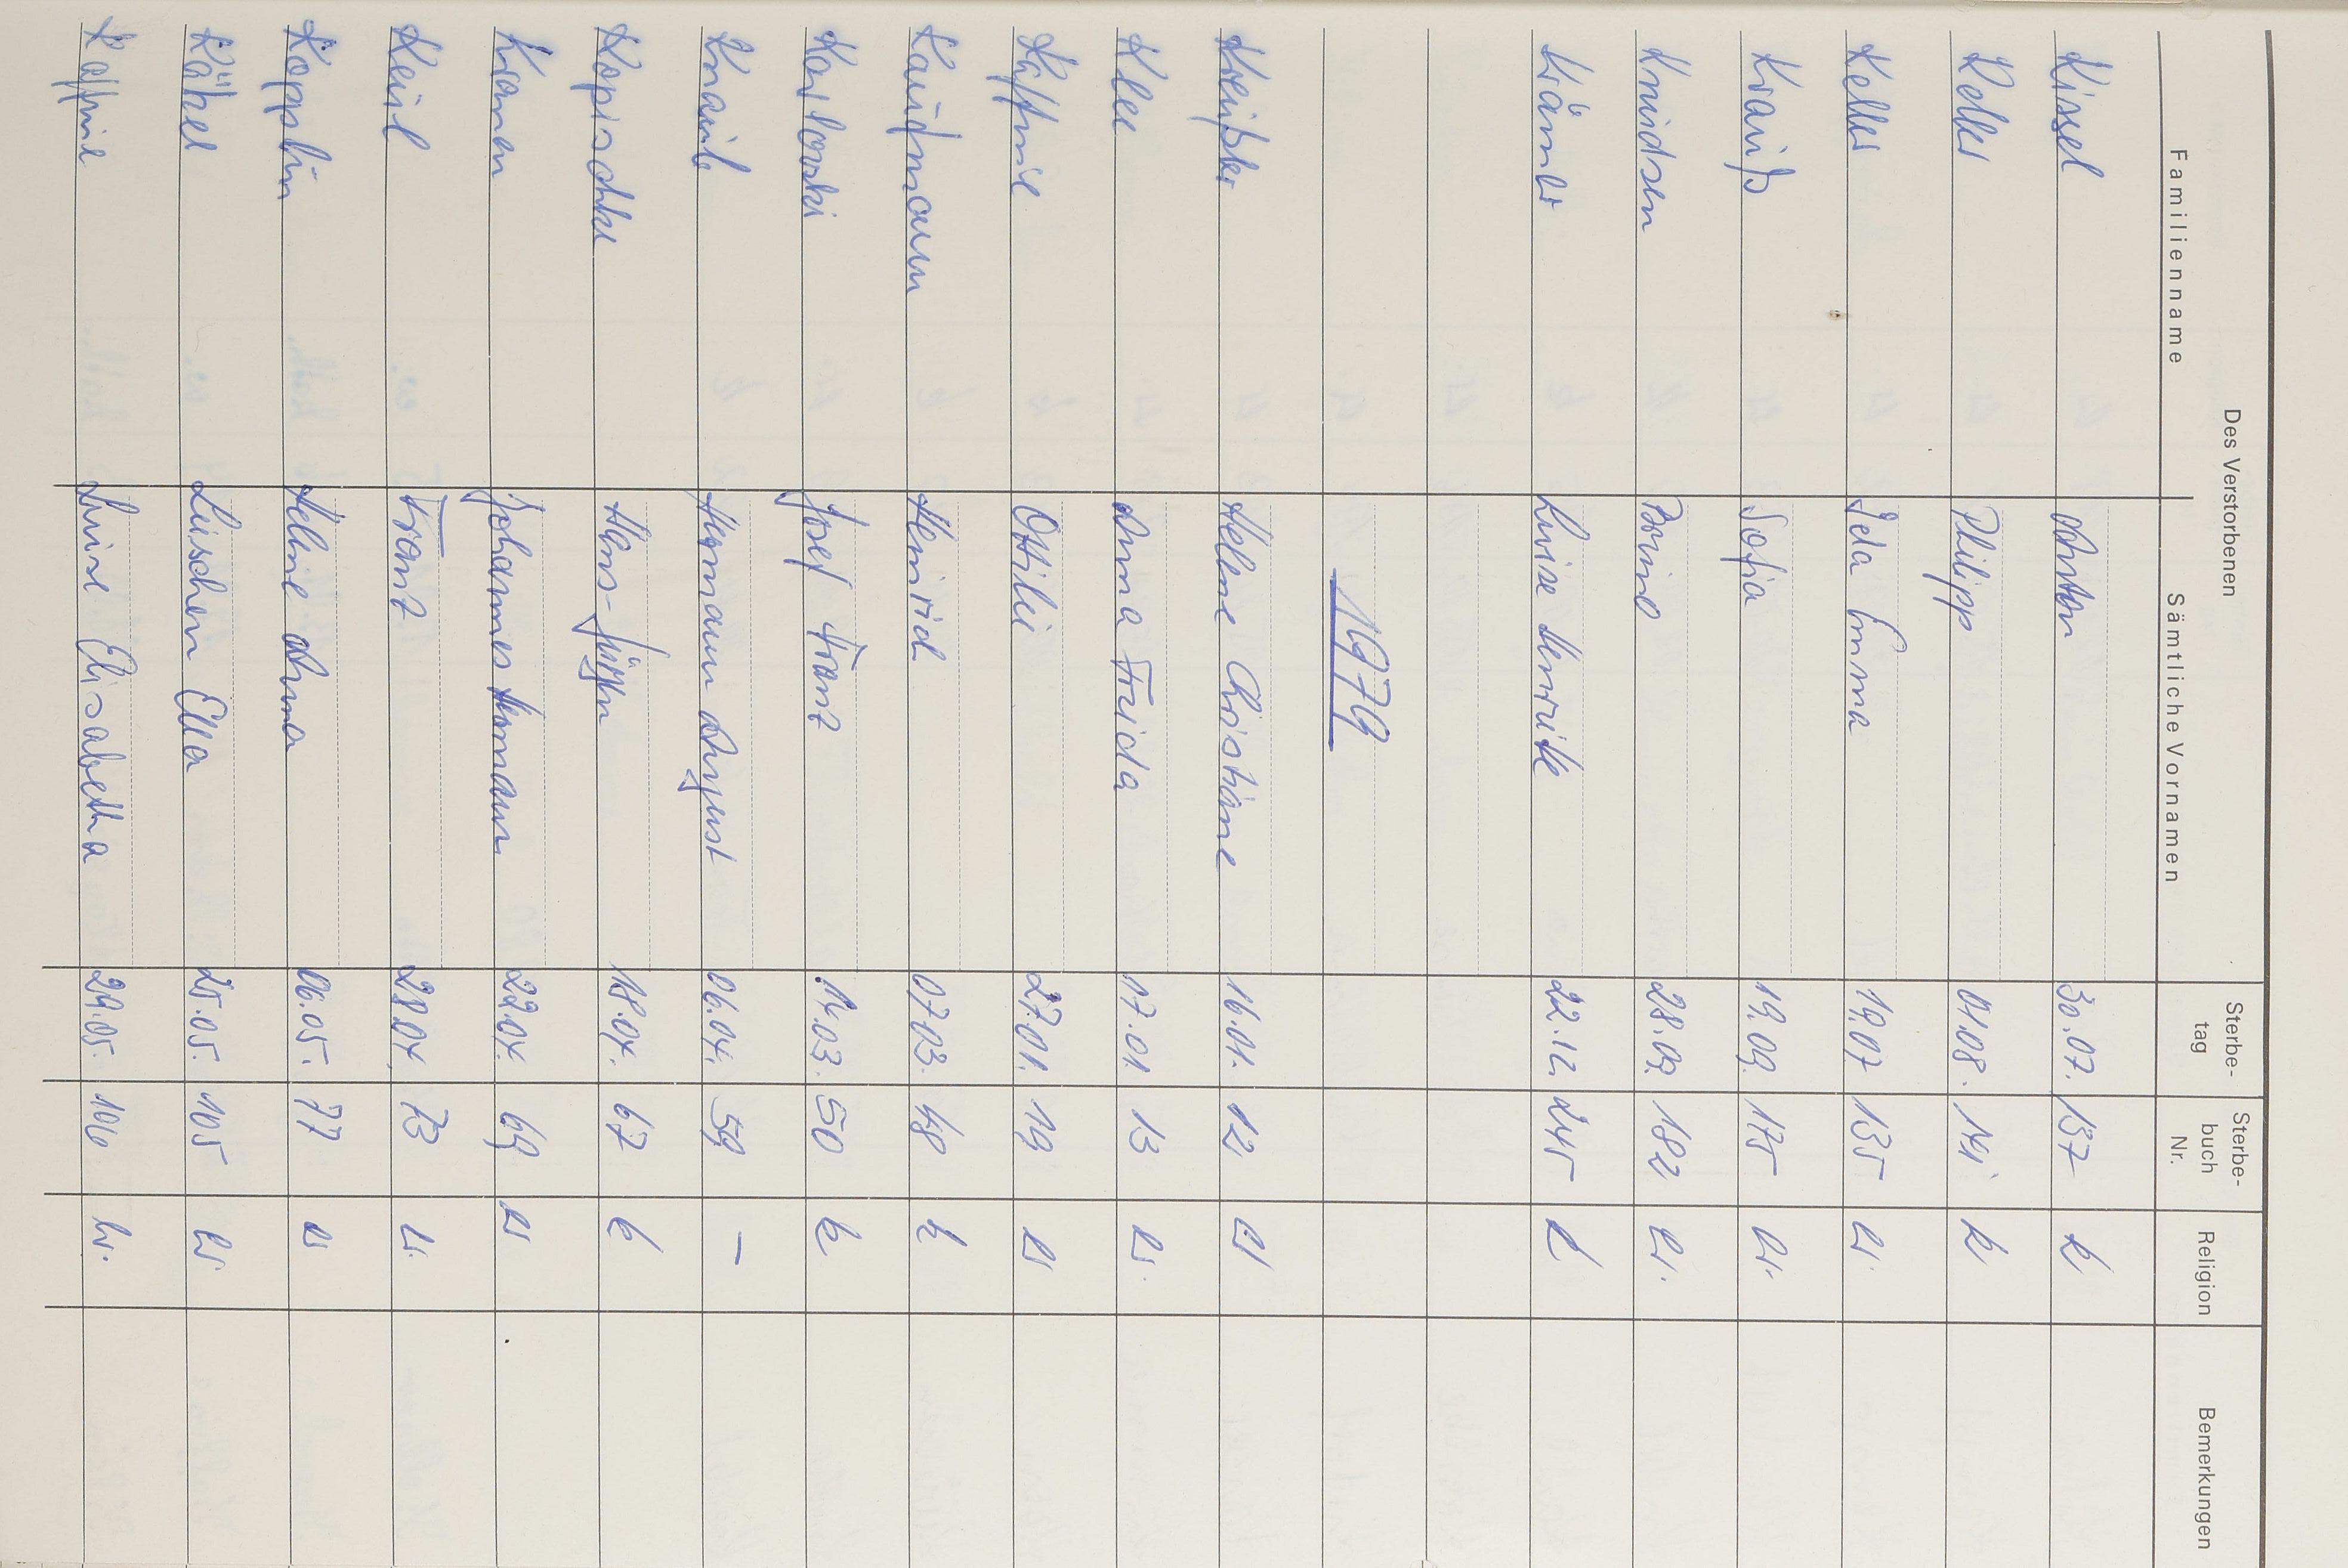 Des Verstorbenen
Familienname Sämtliche Vornamen Sterbe-tag Sterbe-buch Nr. Religion Bemerkungen
Kissel Anton 30.07. 137 k.
Keller Philipp 01.08. 141 k.
Keller Ida Emma 19.07 135 ev.
Krauß Sofia 19.09. 175 ev.
Knudsen Bruno 28.09. 182 ev.
Krämer Luise Henrike 22.12. 245 k.
1979
Kreißler Helene Christiane 16.01. 12 ev
Klee Anna Frieda 17.01. 13 ev.
Ottilie 27.01. 19 ev
Kaufmann 07.03. 48 k
Josef Franz 14.03. 50 k
Hermann August 06.04. 59 –
Kopischke Hans-Jürgen 18.04. 67 k
Kramer Johannes Hermann 22.04. 69 ev
Keul Franz 28.04. 73 ev.
Kopplin Helene Anna 06.05. 77 ev
Köhel Luischen Ella 25.05. 105 ev.
Luise Elisabetha 29.05. 106 ev.